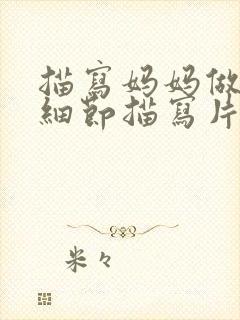 描寫媽媽做
細節描寫片
米々